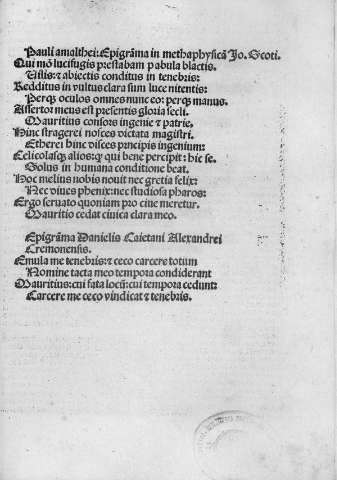 Pauli amalthei: Epigrāma in methaphysicā Jo. Scoti.
Qui mō lucifugis prestabam pabula blactis.
Uilis: & abiectis conditus in tenebris:
Redditus in vultus clara sum luce nitentis:
Perq; oculos omnes nunc eo: perq; manus.
Assertor meus est presentis gloria secli.
Mauritius consors ingenie & patrie.
Hinc stragerei nosces dictata magistri.
Etherei hinc disces p̄ncipis ingenium:
Celicolasq; alios: q̄ qui bene percipit: hic se.
Solus in humana conditione beat.
Hoc melius nobis nouit nec gretia felix:
Nec diues phenix: nec studiosa pharos:
Ergo seruato quoniam pro ciue meretur.
Mauritio cedat ciuica clara meo.
Epigrāma Danielis Caietani Alexandrei
Cremonensis.
Emula me tenebris: & ceco carcere totum
Nomine tacta meo tempora condiderant
Mauritius: cui fata locū: cui tempora cedunt:
Carcere me ceco vindicat & tenebris.